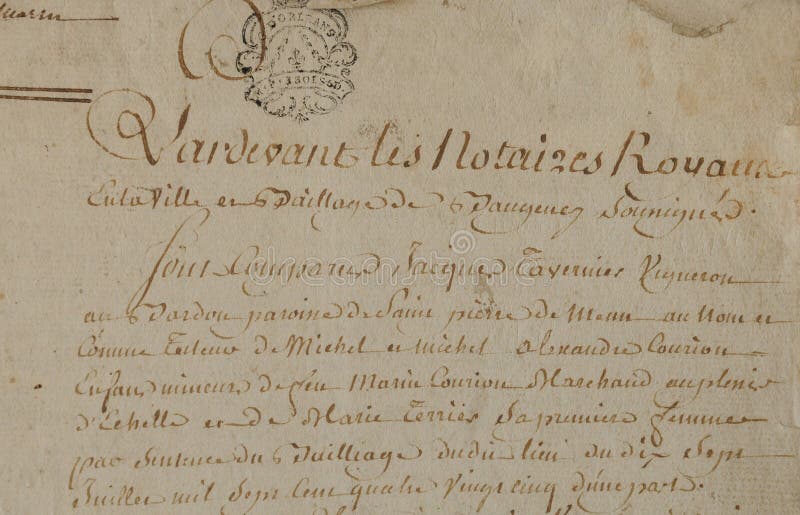 D'ORLEANS
Pardevant les Notaires Royaux
En la Ville et Bailliage de Baugency Soussignés.
Sont Comparus Jacques Tavernier Vigneron
au Bardon paroisse de Saint pierre de Meun au Nom et
Comme Tuteur de Michel et michel alexandre Courion
Enfans mineurs de feu Marin Courion Marchand
d'Echelle et de Marie Terriès Sa premiere femme
par Sentence du Bailliage dudit lieu du dix Sept
Juillet mil Sept Cent quatre Vingt cinq d'une part.
dreamstime